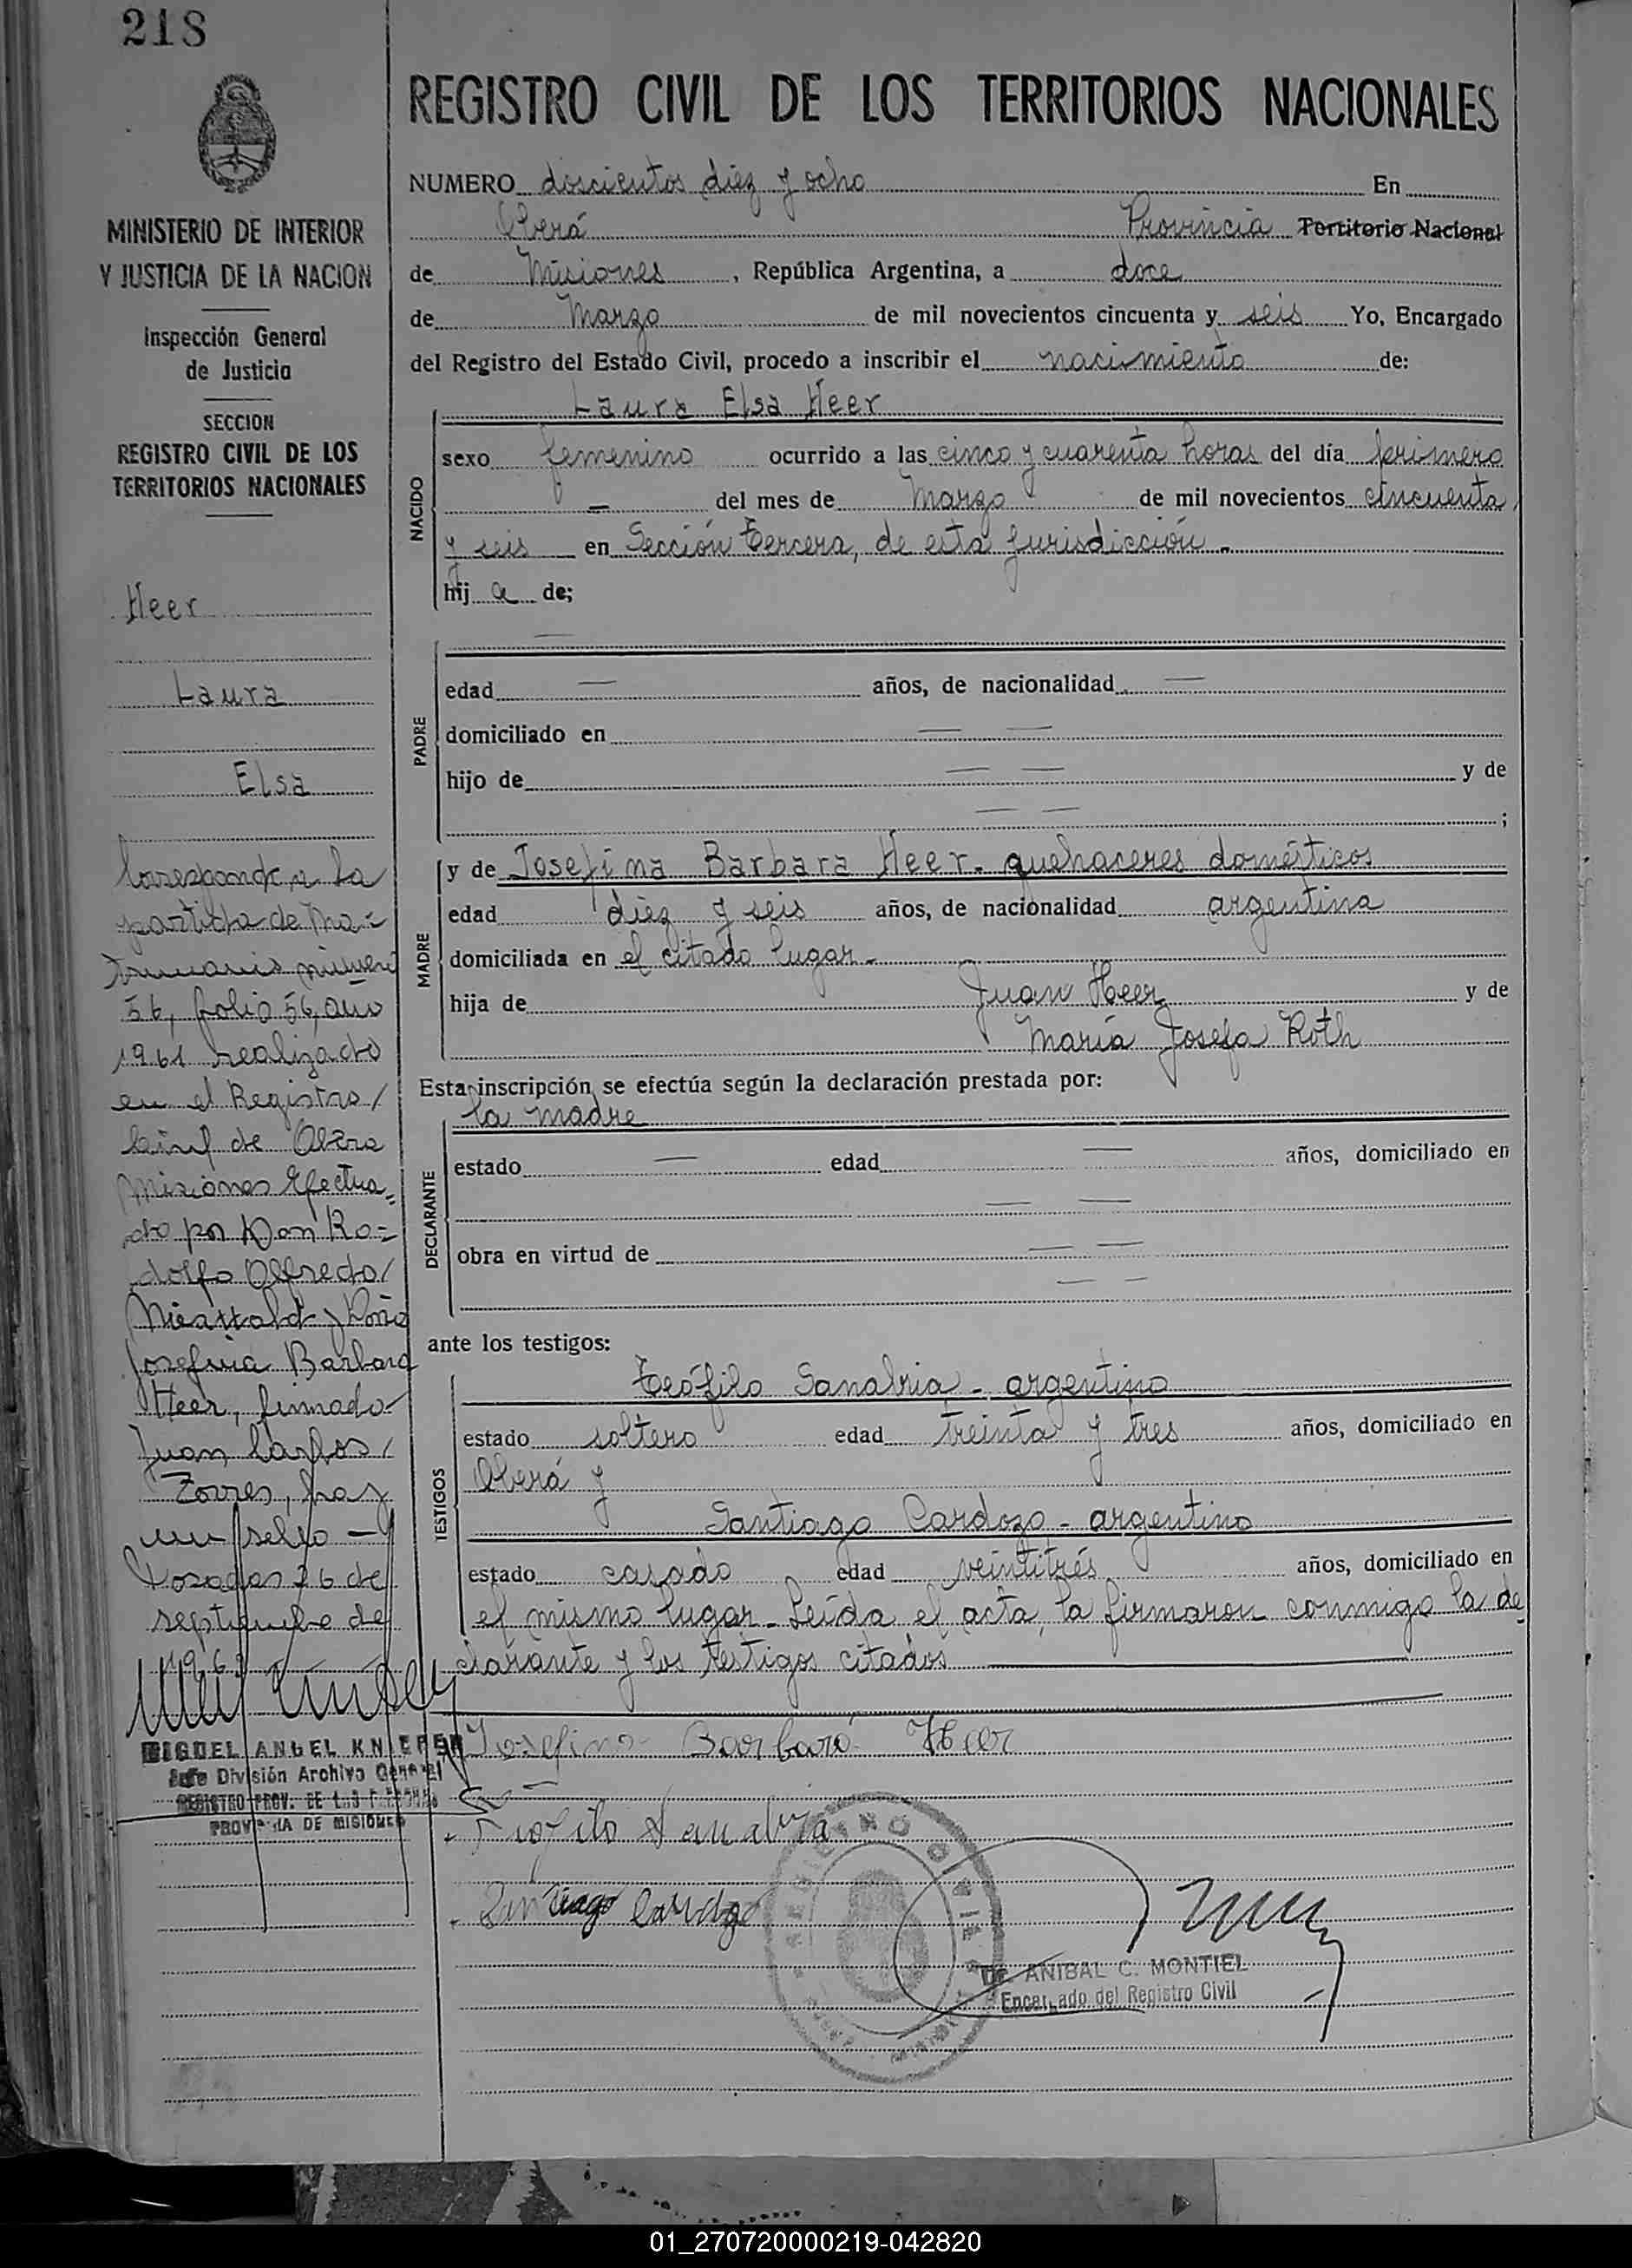 218
REGISTRO CIVIL DE LOS TERRITORIOS NACIONALES
MINISTERIO DE INTERIOR
Y JUSTICIA DE LA NACION
Inspección General
de Justicia
SECCION
REGISTRO CIVIL DE LOS
TERRITORIOS NACIONALES
Heer
Laura
Elsa
Corresponde a la
partida de Ma=
trimonio número
56, folio 56, año
1961 realizado
en el Registro/
Civil de Oberá
Misiones Efectua=
do por Don Ro=
dolfo Alfredo/
y Doña
Josefina Barbara
Heer, firmado
Juan Carlos/
Torres, hay
un sello -
Posadas 26 de
septiembre de
MIGUEL ANGEL KNIEPER
Jefe División Archivo General
REGISTRO PROV. DE LAS PERSONAS
PROVINCIA DE MISIONES
NUMERO doscientos diez y ocho En
Oberá Provincia Territorio Nacional
de Misiones, República Argentina, a doce
de Marzo de mil novecientos cincuenta y seis Yo, Encargado
del Registro del Estado Civil, procedo a inscribir el nacimiento de:
NACIDO
Laura Elsa Heer
sexo femenino ocurrido a las cinco y cuarenta horas del día primero
— del mes de Marzo de mil novecientos cincuenta
y seis en Sección tercera, de esta jurisdicción.-
hija de;
PADRE
—
edad — años, de nacionalidad —
domiciliado en — —
hijo de — — y de
— — ;
MADRE
y de Josefina Barbara Heer.- quehaceres domésticos
edad diez y seis años, de nacionalidad argentina
domiciliada en el citado lugar.-
hija de Juan Heer y de
María Josefa Roth
Esta inscripción se efectúa según la declaración prestada por:
DECLARANTE
la madre
estado — edad — años, domiciliado en
— —
obra en virtud de — —
— —
ante los testigos:
TESTIGOS
Teófilo Sanabria - argentino
estado soltero edad treinta y tres años, domiciliado en
Oberá y
Santiago Cardozo - argentino
estado casado edad veintitrés años, domiciliado en
el mismo lugar.- Leída el acta, la firmaron conmigo la de
clarante y los testigos citados
Josefina Barbara Heer
Teofilo Sanabria
Santiago Cardozo
REGISTRO CIVIL
Dr. ANIBAL C. MONTIEL
Encargado del Registro Civil
01_270720000219-042820